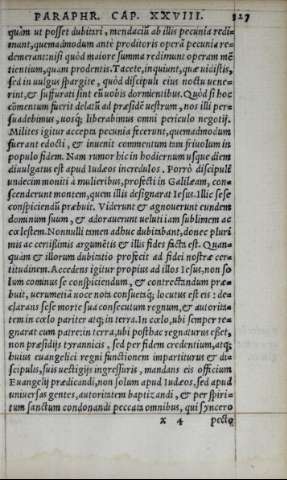 PARAPHR. CAP. XXVIII. 327
quàm ut posset dubitari, mendaciũ ab illis pecunia redi=
mant, quemadmodum antè proditoris operã pecunia re=
demerant: nisi quòd maiore summa redimunt operam mẽ
tientium, quàm prodentis. Tacete, inquiunt, quæ uidistis,
sed in uulgus spargite, quòd discipuli eius noctu uene=
rint, & suffurati sint eũ uobis dormientibus. Quòd si hoc
cõmentum fuerit delatũ ad præsidẽ uestrum, nos illi per=
suadebimus, uosq; liberabimus omni periculo negotij.
Milites igitur accepta pecunia fecerunt, quemadmodum
fuerant edocti, & inuenit commentum tam friuolum in
populo fidem. Nam rumor hic in hodiernum usque diem
diuulgatus est apud Iudæos incredulos. Porrò discipuli
undecim moniti à mulieribus, profecti in Galilæam, con=
scenderunt montem, quem illis designarat Iesus. Illic sese
conspiciendũ præbuit. Viderunt & agnouerunt eundem
dominum suum, & adorauerunt ueluti iam sublimem ac
cœlestem. Nonnulli tamen adhuc dubitabant, donec pluri
mis ac certissimis argumẽtis & illis fides facta est. Quan=
quàm & illorum dubitatio profecit ad fidei nostræ cer=
titudinem. Accedens igitur propius ad illos Iesus, non so
lùm cominus se conspiciendum, & contrectandum præ=
buit, uerumetiã uoce nota consuetaq; locutus est eis: de=
clarans sese morte sua consecutum regnum, & autorita=
tem in cœlo pariter atq; in terra. In cœlo, ubi semper re=
gnarat cum patre: in terra, ubi posthac regnaturus esset,
non præsidijs tyrannicis, sed per fidem credentium, atq;
huius euangelici regni functionem impartiturus & di=
scipulis, suis uestigijs ingressuris, mandans eis officium
Euangelij prædicandi, non solum apud Iudæos, sed apud
uniuersas gentes, autoritatem baptizandi, & per spiri=
tum sanctum condonandi peccata omnibus, qui syncero
x 4 pecto